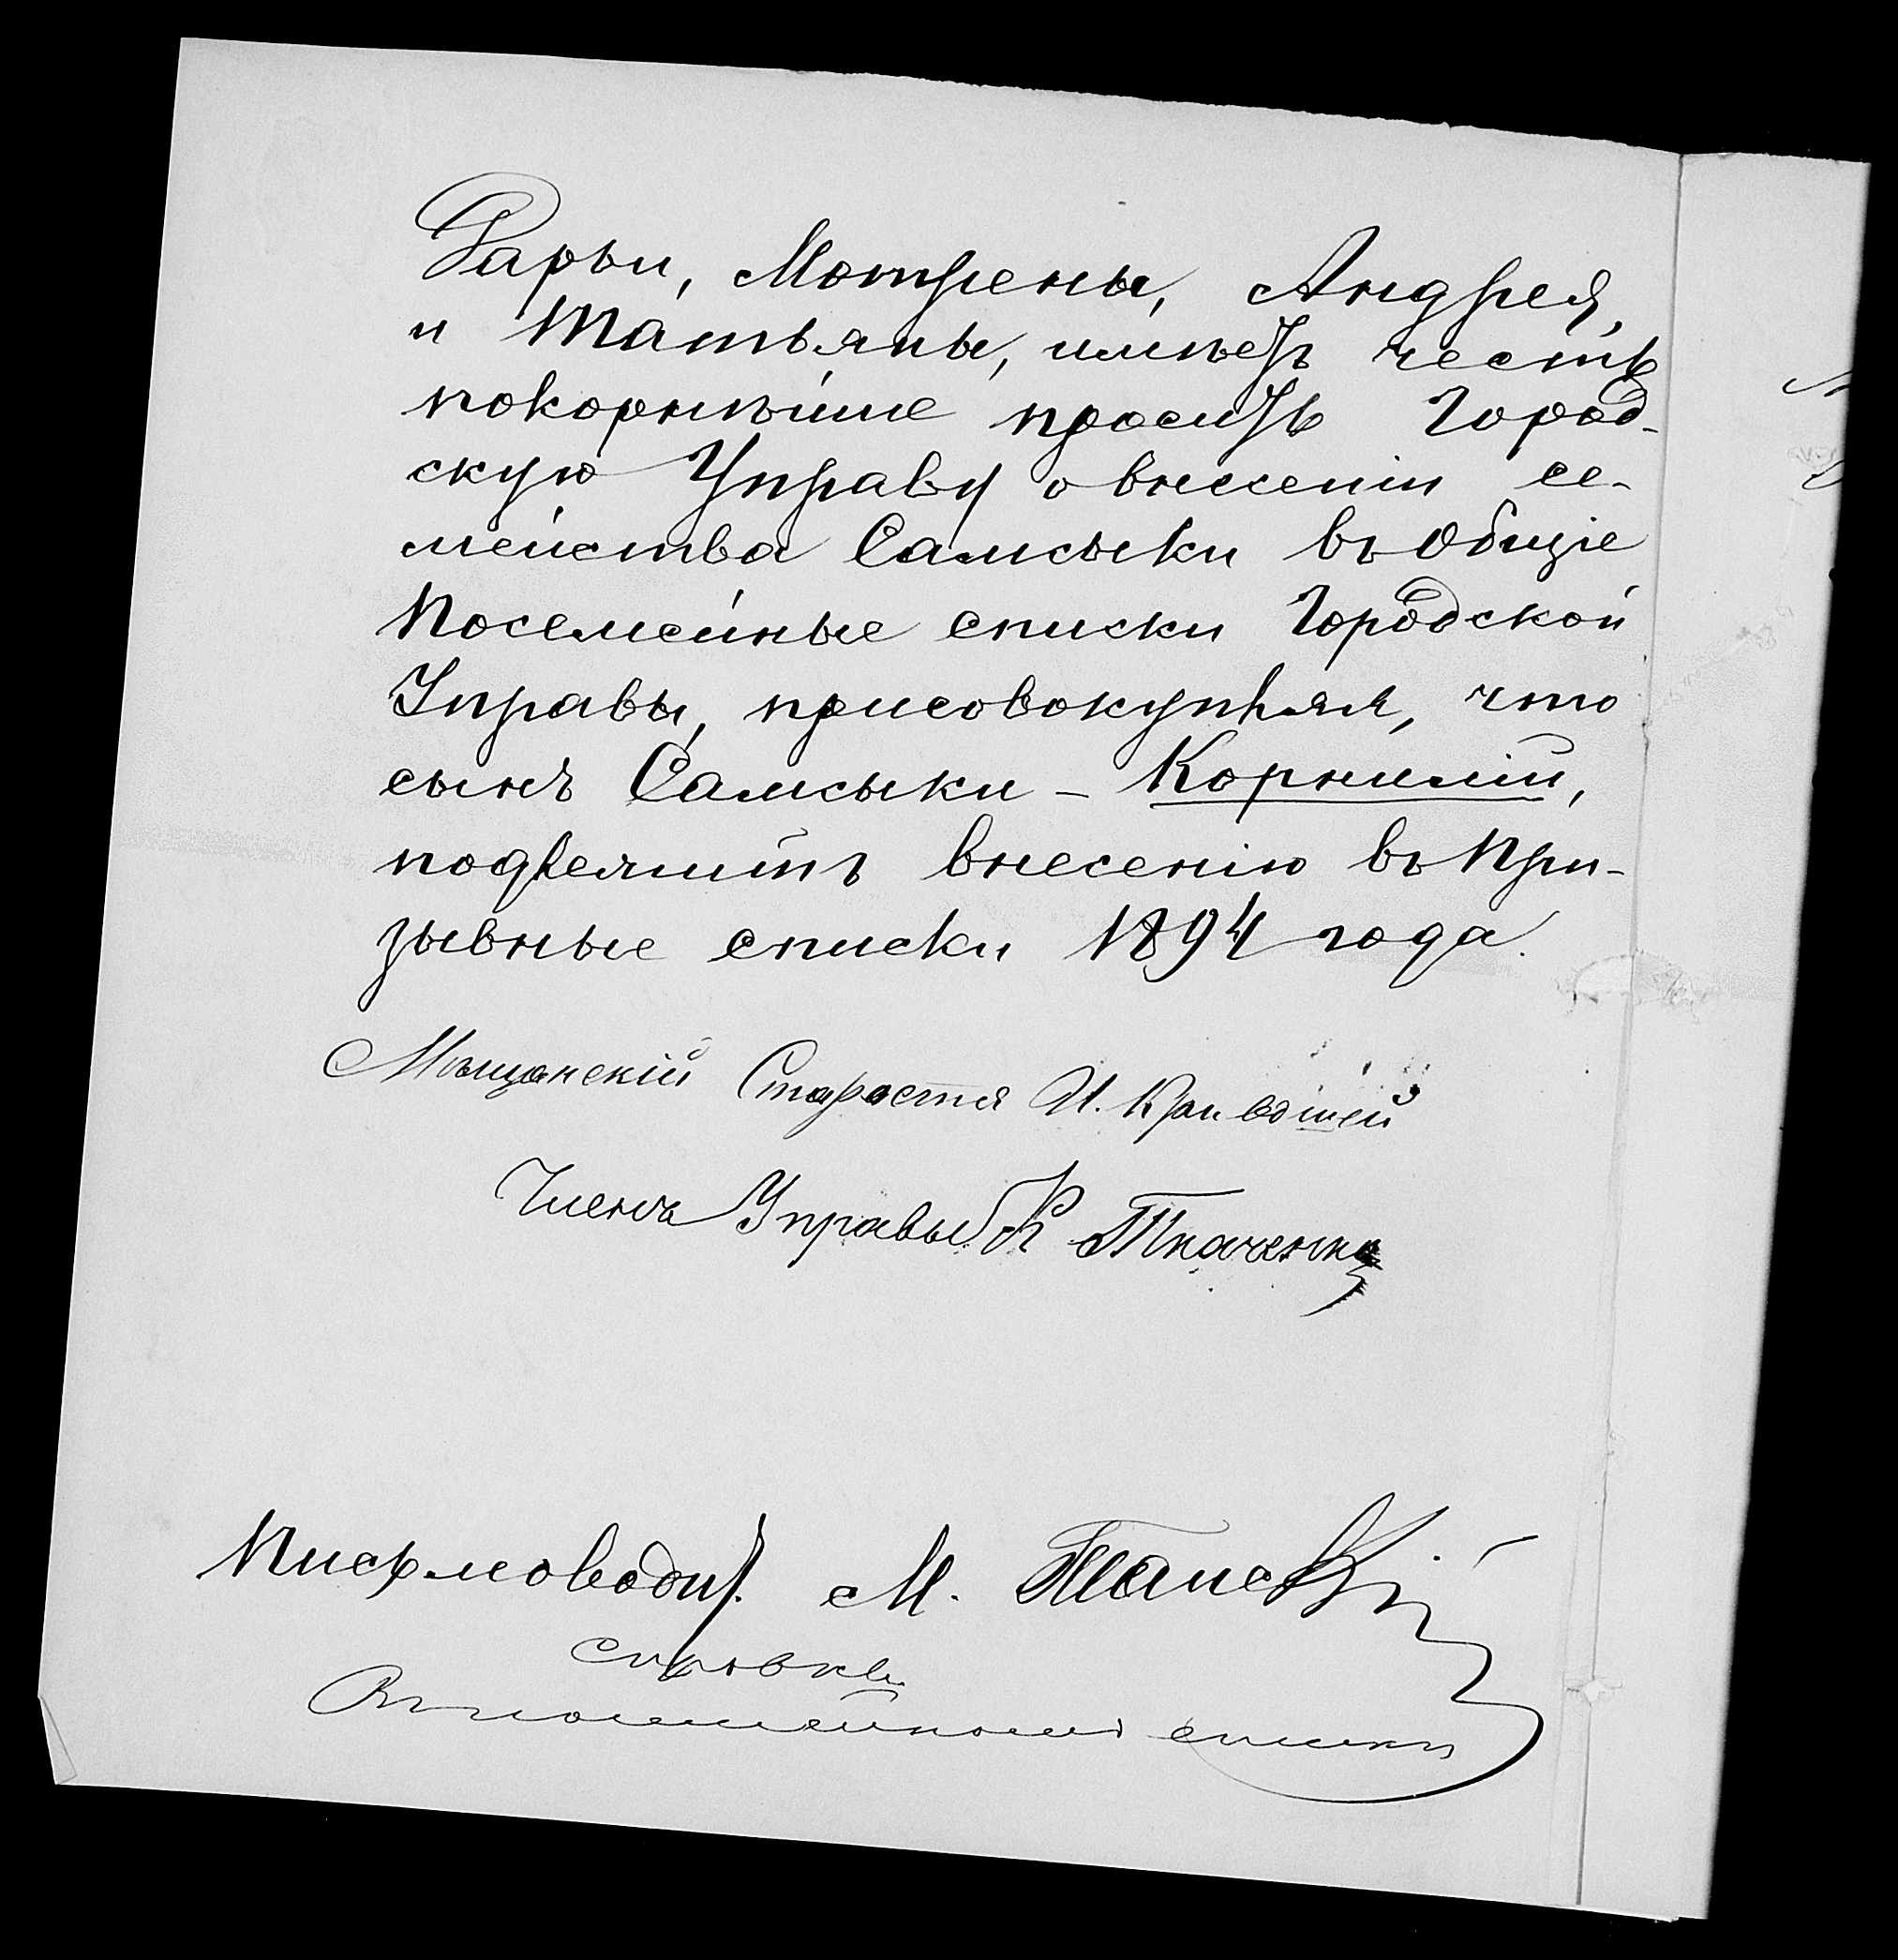 Дарьи, Мотрены, Андрея,
и Татьяны, имѣетъ честь
покорнѣйше просить Город-
скую Управу о внесеніи се-
мейства Самсыки въ Общіе
Посемейные списки Городской
Управы, присовокупляя, что
сынъ Самсыки - Корнилій,
подлежитъ внесенію въ При-
зывные списки 1894 года.
Мѣщанскій Староста И.
Членъ Управы К Ткаченко
Письмоводит. М.
справка
посемейномъ списки